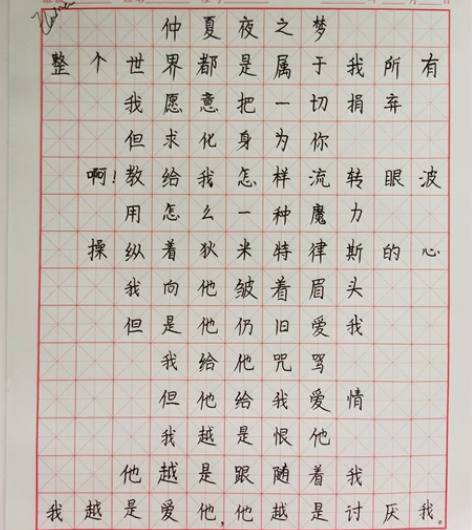 仲夏夜之梦
整个世界都是属于我所有
我愿意把一切捐弃
但求化身为你
啊!教给我怎样流转眼波
用怎么一种魔力
操纵着狄米特律斯的心
我向他皱着眉头
但是他仍旧爱我
我给他咒骂
但他给我爱情
我越是恨他
他越是跟随着我
我越是爱他,他越是讨厌我。